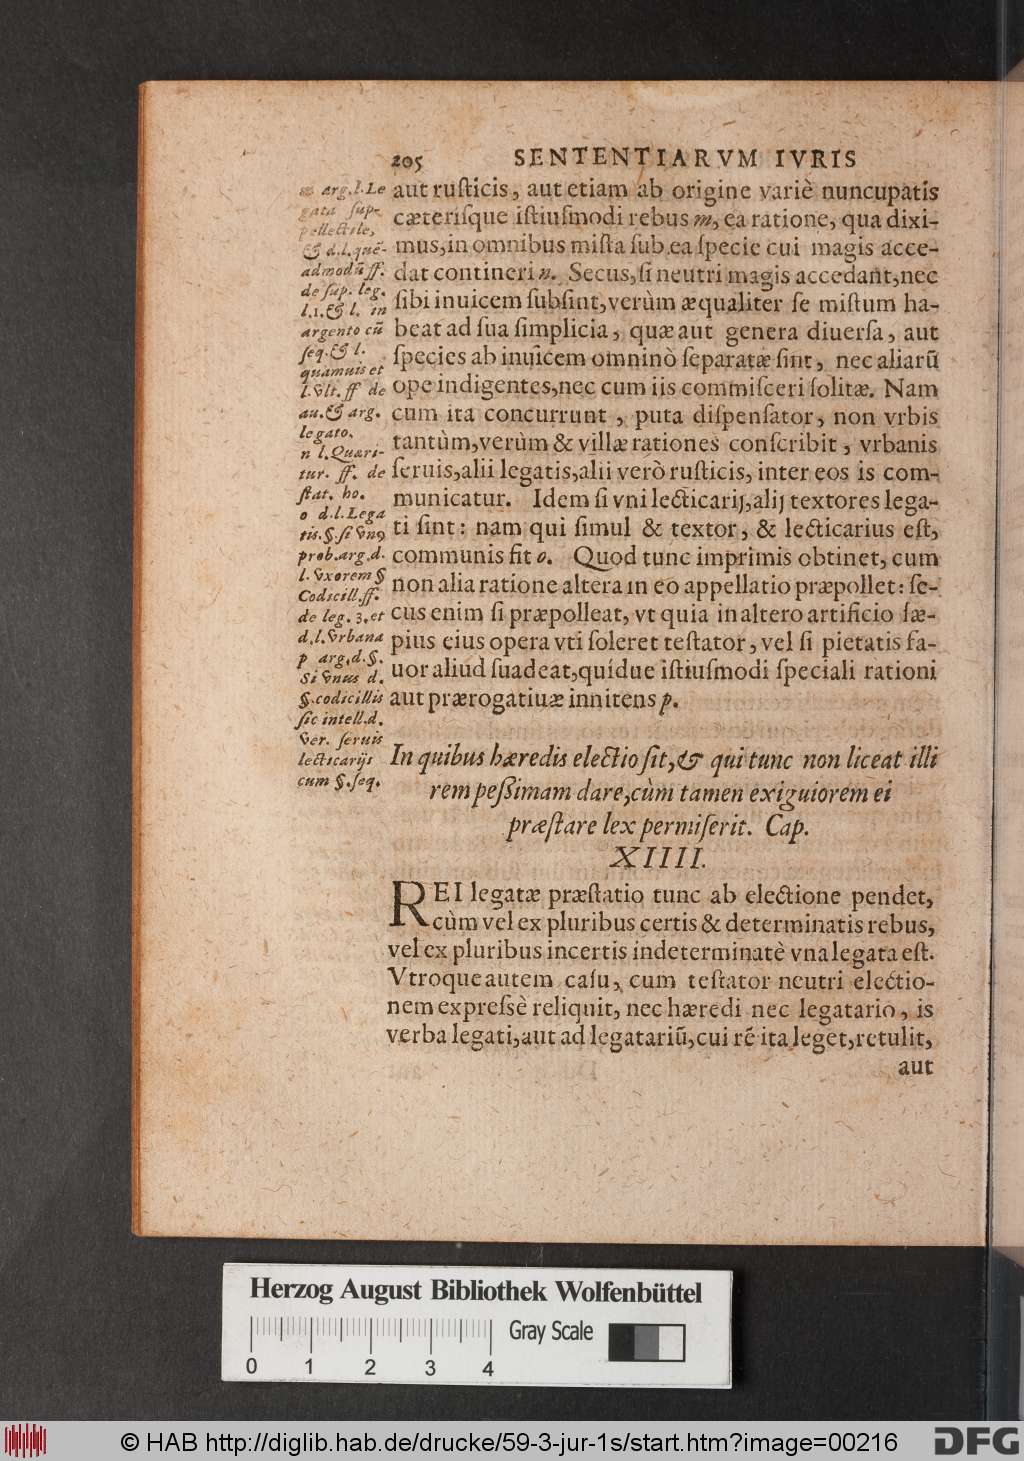 205 SENTENTIARVM IVRIS
aut ruſticis, aut etiam ab origine variè nuncupatis
cæteriſque iſtiuſmodi rebus m, ea ratione, qua dixi-
mus,in omnibus miſta ſub ea ſpecie cui magis acce-
dat contineri n. Secus,ſi neutri magis accedant,nec
ſibi inuicem ſubſint,verùm æqualiter ſe miſtum ha-
beat ad ſua ſimplicia, quæ aut genera diuerſa, aut
ſpecies ab inuicem omninò ſeparatæ ſint, nec aliarũ
ope indigentes,nec cum iis commiſceri ſolitæ. Nam
cum ita concurrunt, puta diſpenſator, non vrbis
tantùm,verùm & villæ rationes conſcribit, vrbanis
ſeruis,alii legatis,alii verò ruſticis, inter eos is com-
municatur. Idem ſi vni lecticarij,alij textores lega-
ti ſint: nam qui ſimul & textor, & lecticarius eſt,
communis fit o. Quod tunc imprimis obtinet, cum
non alia ratione altera in eo appellatio præpollet: ſe-
cus enim ſi præpolleat, vt quia in altero artificio ſæ-
pius eius opera vti ſoleret teſtator, vel ſi pietatis fa-
uor aliud ſuadeat,quídue iſtiuſmodi ſpeciali rationi
aut prærogatiuæ innitens p.
m arg.l.Le
gata ſup-
pellectile,
& d.l.quē-
admodũ ff.
de ſup. leg.
l.1.& l. in
argento cũ
ſeq.& l.
quamuis et
l.vlt.ff de
au.& arg.
legato.
n l.Quæri-
tur. ff. de
ſtat. ho.
o d.l.Lega
tis.§.ſi vnꝰ
prob.arg.d.
l.vxorem §
Codicill.ff.
de leg. 3.et
d.l.vrbana
p arg.d.§.
Si vnus d.
§.codicillis
ſic intell.d.
ver. ſeruis
lecticarijs
cum §.ſeq.
In quibus hæredis electio ſit,& qui tunc non liceat illi
rem peßimam dare,cùm tamen exiguiorem ei
præſtare lex permiſerit. Cap.
XIIII.
REI legatæ præſtatio tunc ab electione pendet,
cùm vel ex pluribus certis & determinatis rebus,
vel ex pluribus incertis indeterminatè vna legata eſt.
Vtroque autem caſu, cum teſtator neutri electio-
nem expreſsè reliquit, nec hæredi nec legatario, is
verba legati,aut ad legatariũ,cui rẽ ita leget,retulit,
aut
Herzog August Bibliothek Wolfenbüttel
Gray Scale
0 1 2 3 4
© HAB http://diglib.hab.de/drucke/59-3-jur-1s/start.htm?image=00216
DFG